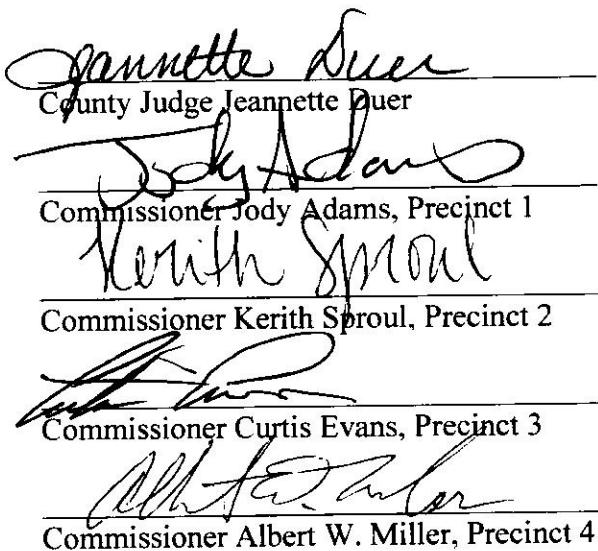 Jeannette Duer
County Judge Jeannette Duer
Jody Adams
Commissioner Jody Adams, Precinct 1
Kerith Sproul
Commissioner Kerith Sproul, Precinct 2
Commissioner Curtis Evans, Precinct 3
Albert W.
Commissioner Albert W. Miller, Precinct 4